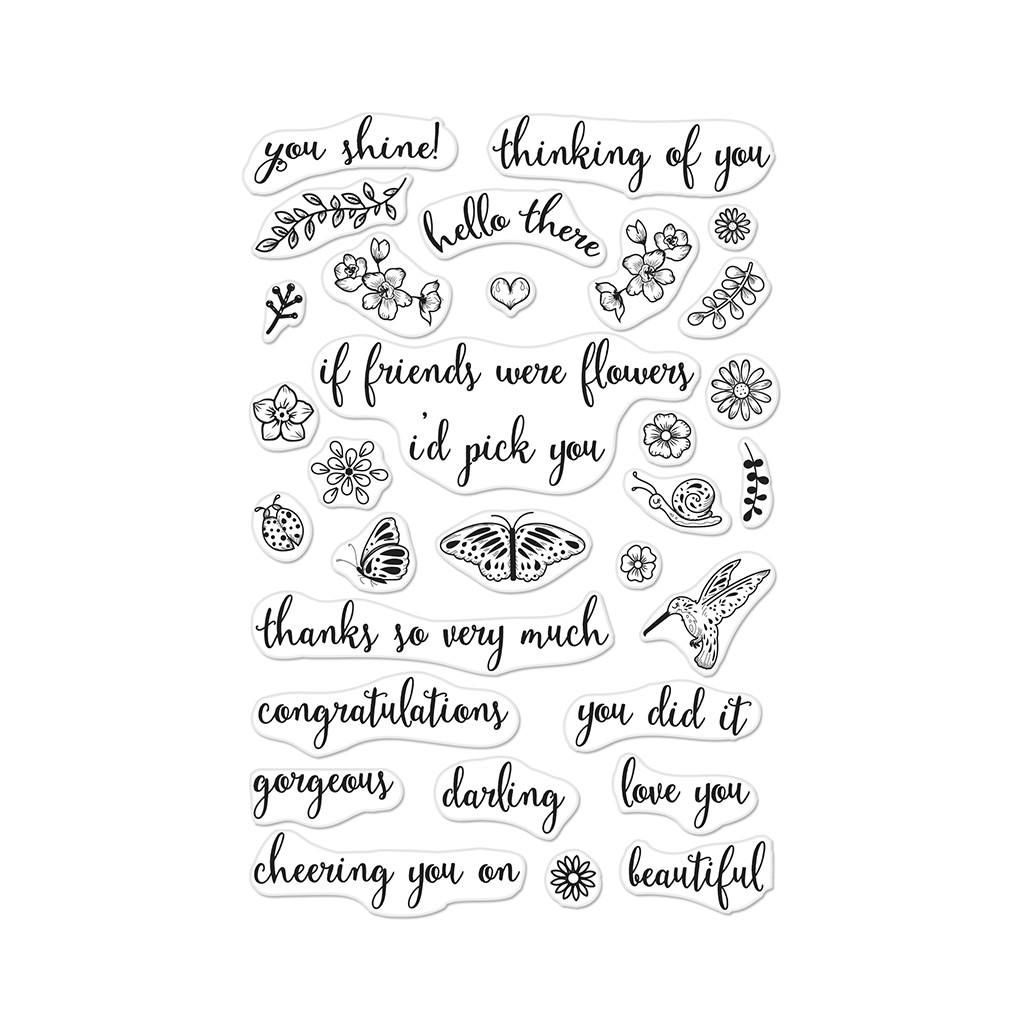 you shine!
thinking of you
hello there
if friends were flowers
i'd pick you
thanks so very much
congratulations
you did it
gorgeous
darling
love you
cheering you on
beautiful